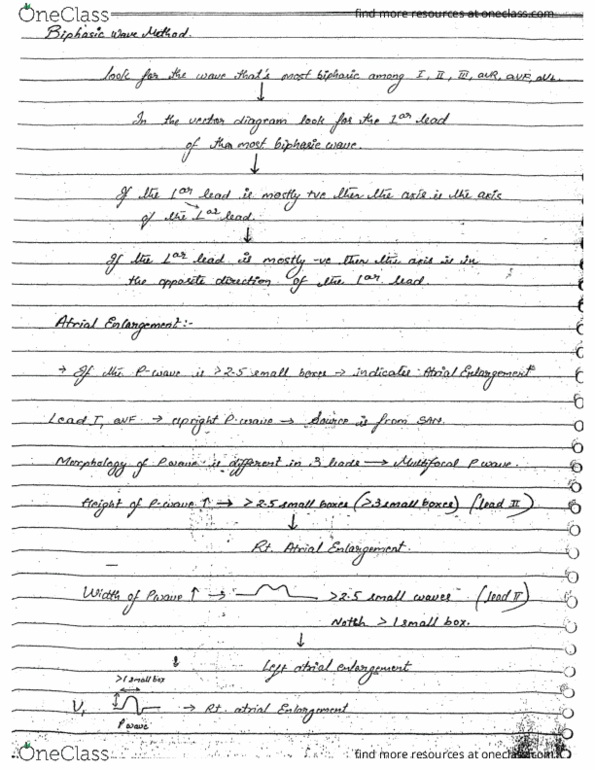 OneClass find more resources at oneclass.com
Biphasic wave Method.
look for the wave that's most biphasic among I, II, III, aVR, aVF, aVL.
↓
In the vector diagram look for the Lar lead
of the most biphasic wave.
↓
If the Lar lead is mostly +ve then the axis is the axis
of the Lar lead.
↓
If the Lar lead is mostly -ve then the axis is in
the opposite direction of the Lar lead.
Atrial Enlargement:-
→ If the P-wave is >2.5 small boxes → indicates Atrial Enlargement
Lead I, aVF → upright P-wave → Source is from SAN.
Morphology of P wave is different in 3 leads → Multifocal P wave.
Height of P-wave ↑ → >2.5 small boxes (>3 small boxes) (lead II)
↓
Rt. Atrial Enlargement.
Width of P wave ↑ → >2.5 small waves (lead II)
Notch >1 small box.
↓
Left atrial enlargement
>1 small box
V1 → Rt. atrial Enlargement
P wave
OneClass find more resources at oneclass.com